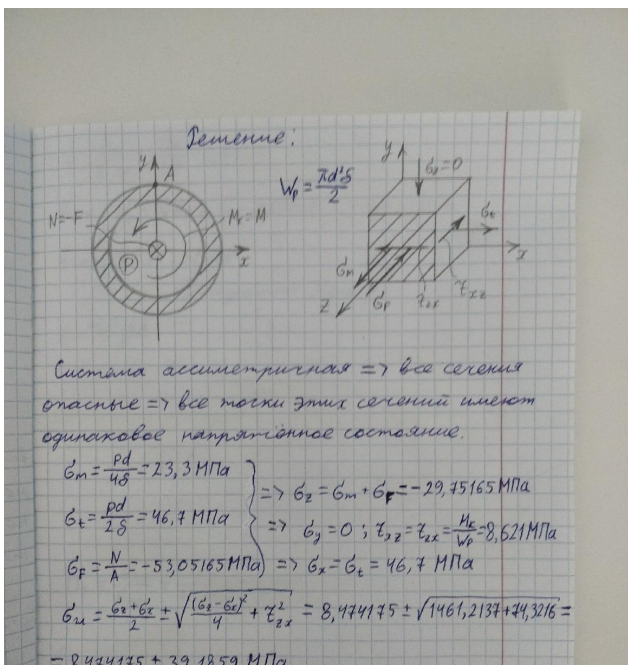 Решение:
y A
N=-F
Mк=M
P
x
Wp = πd²δ / 2
y
σy=0
σt
x
σm
z
σF
τzx
τxz
Система ассиметричная => все сечения
опасные => все точки этих сечений имеют
одинаковое напряжённое состояние.
σm = pd/4δ = 23,3 МПа
σt = pd/2δ = 46,7 МПа
σF = N/A = -53,05165 МПа
=> σz = σm + σF = -29,75165 МПа
=> σy = 0 ; τxz = τzx = Mк/Wp = 8,621 МПа
=> σx = σt = 46,7 МПа
σu = (σz + σx)/2 ± √((σz - σx)²/4 + τ²zx) = 8,474175 ± √(1461,2137+74,3216) =
= 8,474175 ± 39,1859 МПа